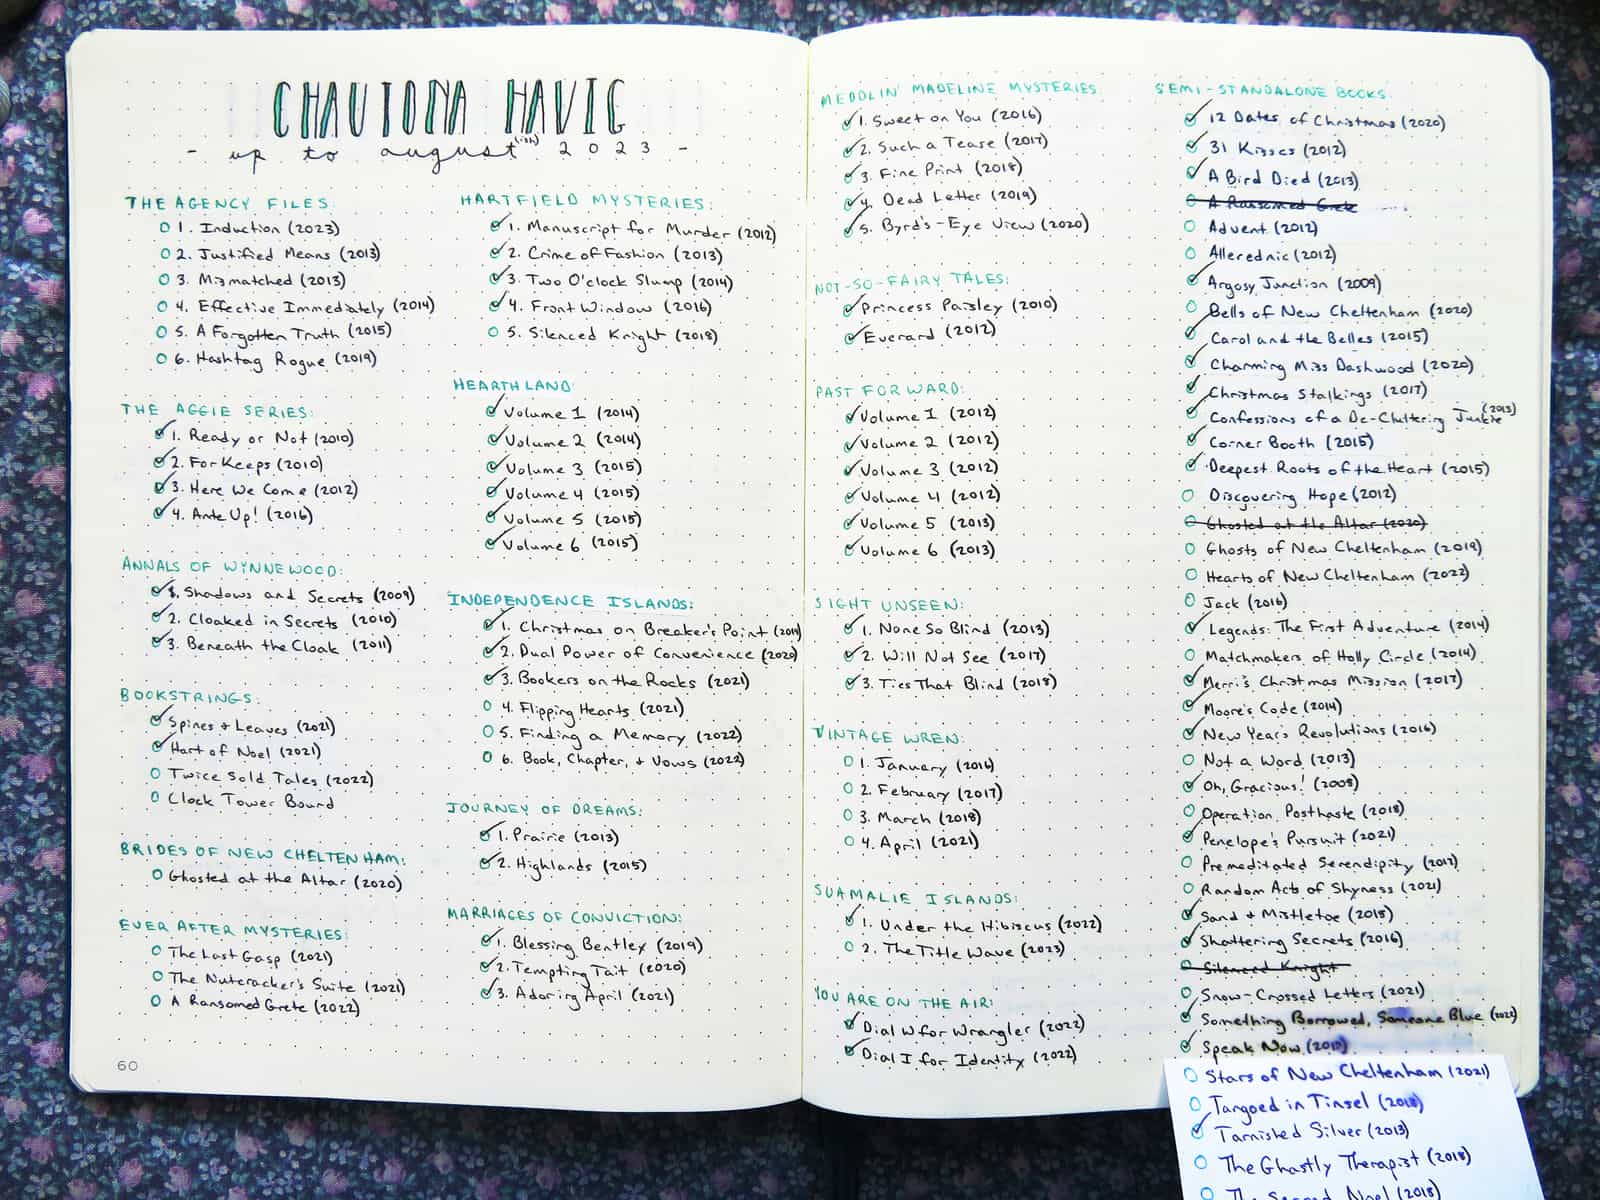 CHAUTONA HAVIG
- up to august (ish) 2023 -
THE AGENCY FILES:
1. Induction (2023)
2. Justified Means (2013)
3. Mismatched (2013)
4. Effective Immediately (2014)
5. A Forgotten Truth (2015)
6. Hashtag Rogue (2019)
THE AGGIE SERIES:
1. Ready or Not (2010)
2. For Keeps (2010)
3. Here We Come (2012)
4. Ante Up! (2016)
ANNALS OF WYNNEWOOD:
1. Shadows and Secrets (2009)
2. Cloaked in Secrets (2010)
3. Beneath the Cloak (2011)
BOOKSTRINGS:
Spines + Leaves (2021)
Hart of Noel (2021)
Twice Sold Tales (2022)
Clock Tower Bound
BRIDES OF NEW CHELTENHAM:
Ghosted at the Altar (2020)
EVER AFTER MYSTERIES:
The Last Gasp (2021)
The Nutcracker's Suite (2021)
A Ransomed Grete (2022)
60
HARTFIELD MYSTERIES:
1. Manuscript for Murder (2012)
2. Crime of Fashion (2013)
3. Two O'clock Slump (2014)
4. Front Window (2016)
5. Silenced Knight (2018)
HEARTHLAND:
Volume 1 (2014)
Volume 2 (2014)
Volume 3 (2015)
Volume 4 (2015)
Volume 5 (2015)
Volume 6 (2015)
INDEPENDENCE ISLANDS:
1. Christmas on Breaker's Point (2019)
2. Dual Power of Convenience (2020)
3. Bookers on the Rocks (2021)
4. Flipping Hearts (2021)
5. Finding a Memory (2022)
6. Book, Chapter, + Vows (2022)
JOURNEY OF DREAMS:
1. Prairie (2013)
2. Highlands (2015)
MARRIAGES OF CONVICTION:
1. Blessing Bentley (2019)
2. Tempting Tait (2020)
3. Adoring April (2021)
MEDDLIN' MADELINE MYSTERIES:
1. Sweet on You (2016)
2. Such a Tease (2017)
3. Fine Print (2018)
4. Dead Letter (2019)
5. Byrd's-Eye View (2020)
NOT-SO-FAIRY TALES:
Princess Paisley (2010)
Everard (2012)
PAST FORWARD:
Volume 1 (2012)
Volume 2 (2012)
Volume 3 (2012)
Volume 4 (2012)
Volume 5 (2013)
Volume 6 (2013)
SIGHT UNSEEN:
1. None So Blind (2013)
2. Will Not See (2017)
3. Ties That Blind (2018)
VINTAGE WREN:
1. January (2016)
2. February (2017)
3. March (2018)
4. April (2021)
SUAMALIE ISLANDS:
1. Under the Hibiscus (2022)
2. The Title Wave (2023)
YOU ARE ON THE AIR:
Dial W for Wrangler (2022)
Dial I for Identity (2022)
SEMI-STANDALONE BOOKS:
12 Dates of Christmas (2020)
31 Kisses (2012)
A Bird Died (2013)
A Ransomed Grete
Advent (2012)
Allerednic (2012)
Argosy Junction (2009)
Bells of New Cheltenham (2020)
Carol and the Belles (2015)
Charming Miss Dashwood (2020)
Christmas Stalkings (2017)
Confessions of a De-Cluttering Junkie (2013)
Corner Booth (2015)
Deepest Roots of the Heart (2015)
Discovering Hope (2012)
Ghosted at the Altar (2020)
Ghosts of New Cheltenham (2019)
Hearts of New Cheltenham (2022)
Jack (2016)
Legends: The First Adventure (2014)
Matchmakers of Holly Circle (2014)
Merri's Christmas Mission (2017)
Moore's Code (2014)
New Year's Revolutions (2016)
Not a Word (2013)
Oh, Gracious! (2008)
Operation Posthaste (2018)
Penelope's Pursuit (2021)
Premeditated Serendipity (2017)
Random Acts of Shyness (2021)
Sand + Mistletoe (2018)
Shattering Secrets (2016)
Silenced Knight
Snow-Crossed Letters (2021)
Something Borrowed, Someone Blue (2022)
Speak Now
Stars of New Cheltenham (2021)
Tangoed in Tinsel (2018)
Tarnished Silver (2013)
The Ghastly Therapist (2018)
The Second Noel (2018)